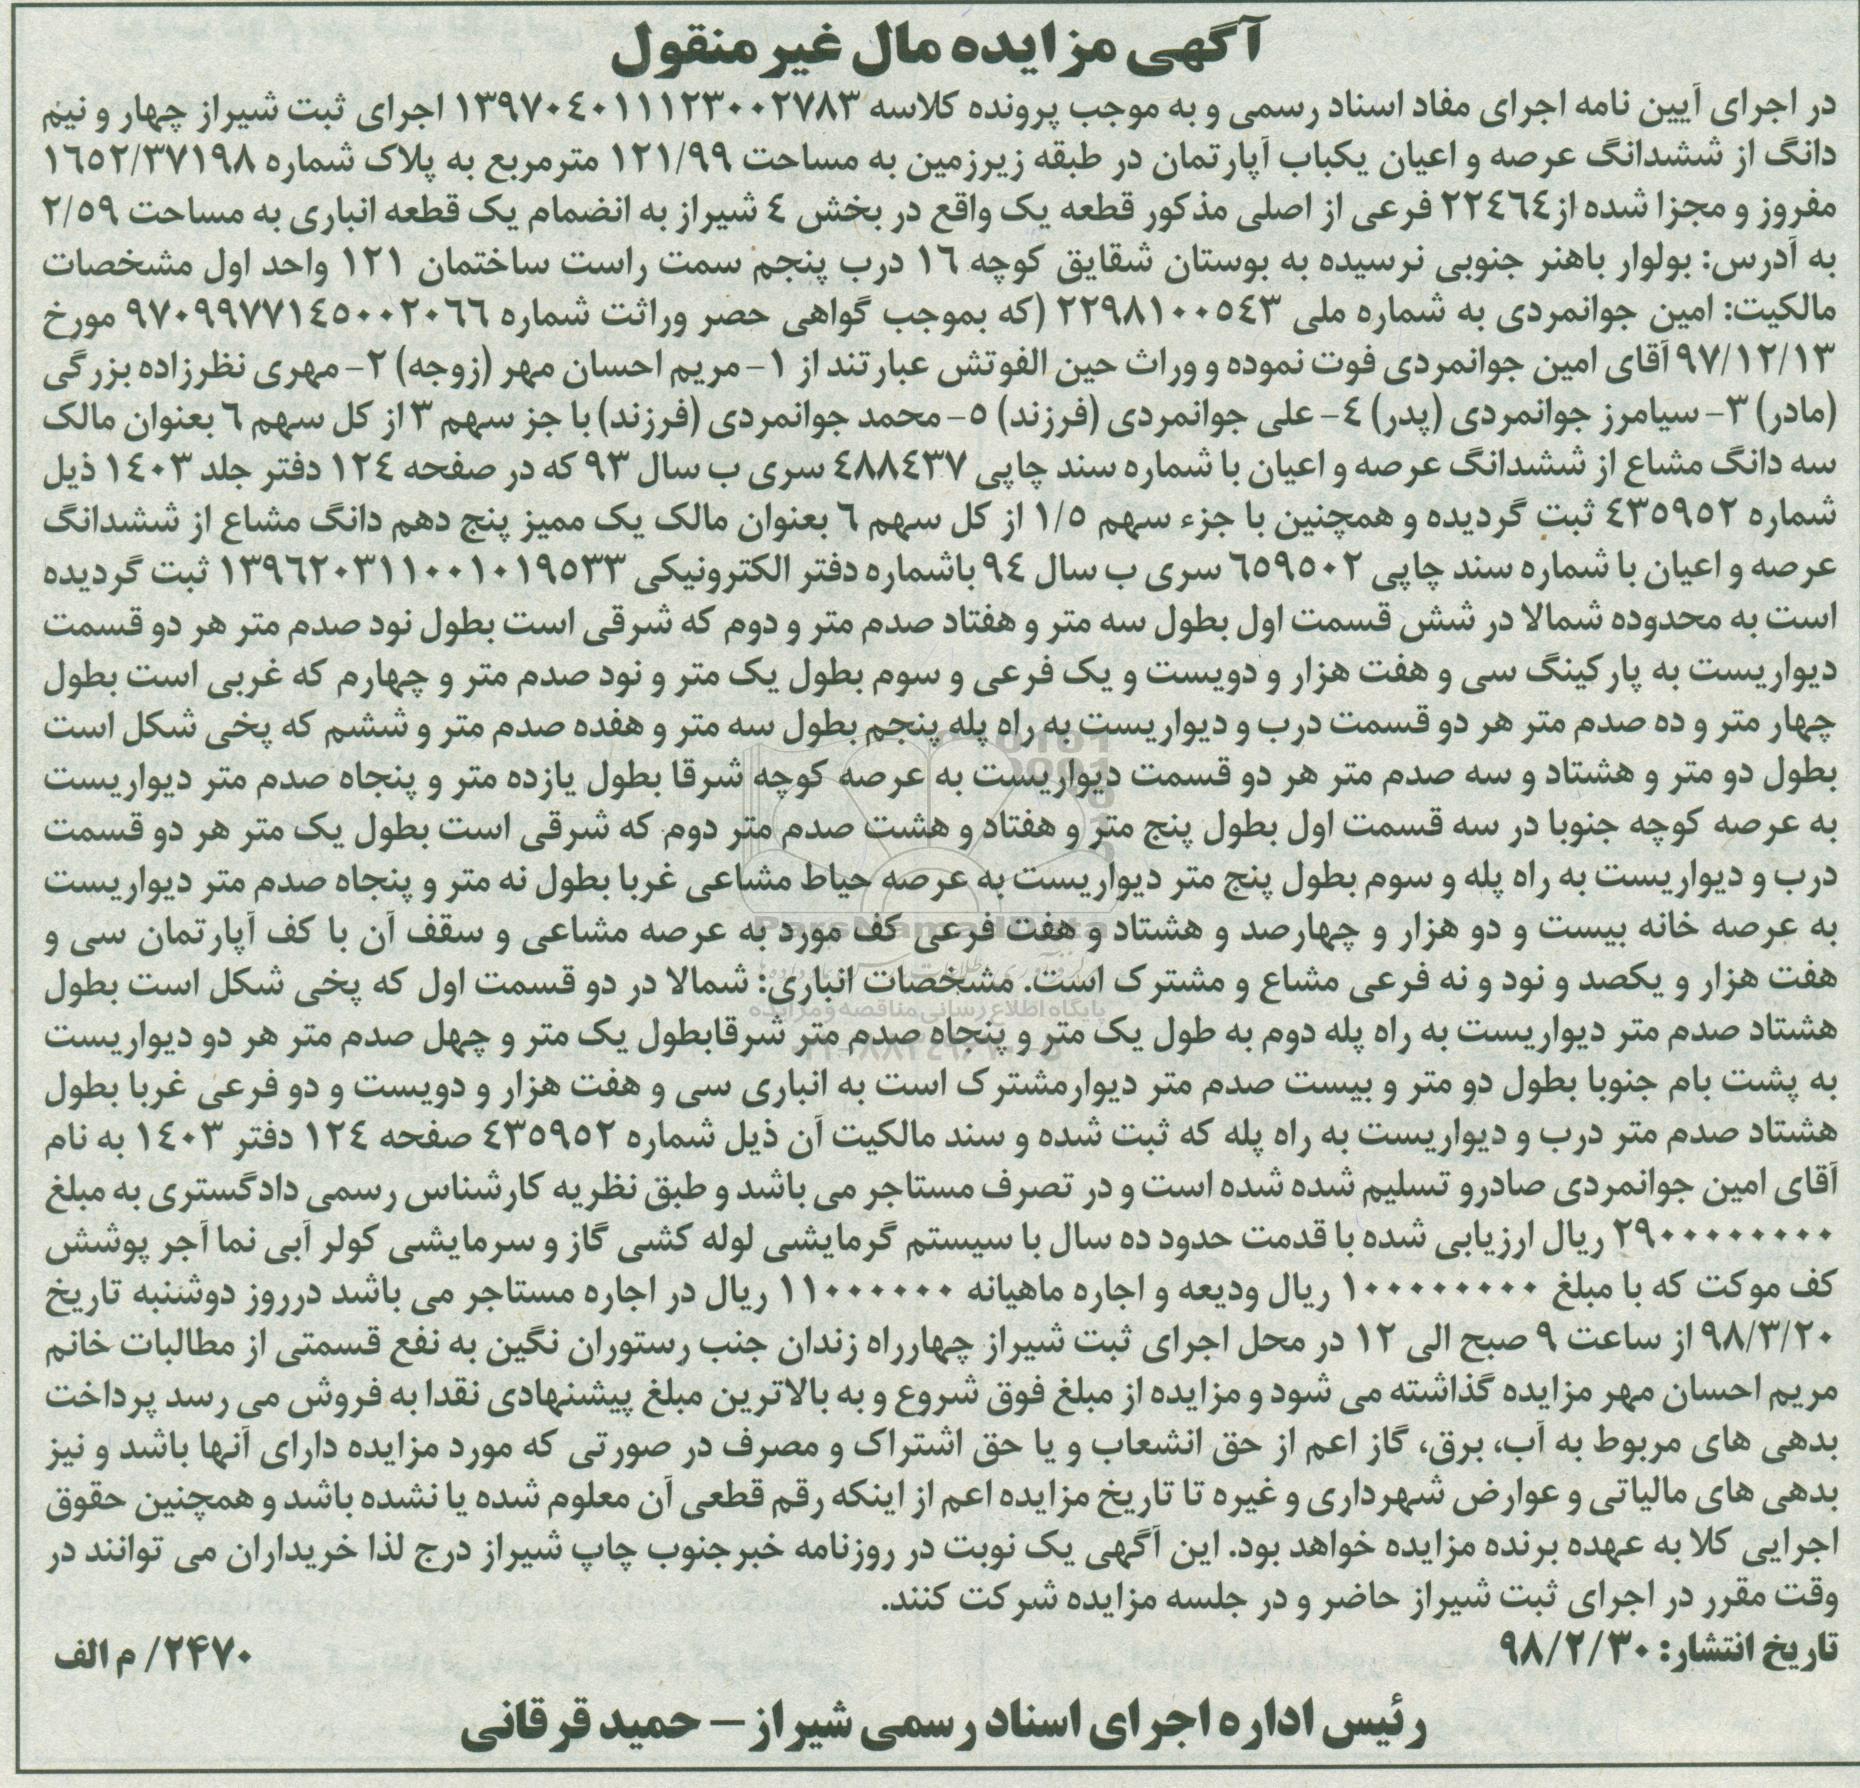 آگهی مزایده مال غیر منقول
در اجرای آیین نامه اجرای مفاد اسناد رسمی و به موجب پرونده کلاسه ۱۳۹۷۰۴۰۱۱۱۲۳۰۰۲۷۸۳ اجرای ثبت شیراز چهار و نیم
دانگ از ششدانگ عرصه و اعیان یکباب آپارتمان در طبقه زیرزمین به مساحت ۱۲۱/۹۹ مترمربع به پلاک شماره ۱۶۵۲/۳۷۱۹۸
مفروز و مجزا شده از۲۲۴۶۴ فرعی از اصلی مذکور قطعه یک واقع در بخش ۴ شیراز به انضمام یک قطعه انباری به مساحت ۲/۵۹
به آدرس: بولوار باهنر جنوبی نرسیده به بوستان شقایق کوچه ۱۶ درب پنجم سمت راست ساختمان ۱۲۱ واحد اول مشخصات
مالکیت: امین جوانمردی به شماره ملی ۲۲۹۸۱۰۰۵۴۳ (که بموجب گواهی حصر وراثت شماره ۹۷۰۹۹۷۷۱۴۵۰۰۲۰۶۶ مورخ
۹۷/۱۲/۱۳ آقای امین جوانمردی فوت نموده و وراث حین الفوتش عبارتند از ۱- مریم احسان مهر (زوجه) ۲- مهری نظرزاده بزرگی
(مادر) ۳- سیامرز جوانمردی (پدر) ۴- علی جوانمردی (فرزند) ۵- محمد جوانمردی (فرزند) با جز سهم ۳ از کل سهم ۶ بعنوان مالک
سه دانگ مشاع از ششدانگ عرصه و اعیان با شماره سند چاپی ۴۸۸۴۳۷ سری ب سال ۹۳ که در صفحه ۱۲۴ دفتر جلد ۱۴۰۳ ذیل
شماره ۴۳۵۹۵۲ ثبت گردیده و همچنین با جزء سهم ۱/۵ از کل سهم ۶ بعنوان مالک یک ممیز پنج دهم دانگ مشاع از ششدانگ
عرصه و اعیان با شماره سند چاپی ۶۵۹۵۰۲ سری ب سال ۹۴ باشماره دفتر الکترونیکی ۱۳۹۶۲۰۳۱۱۰۰۱۰۱۹۵۳۳ ثبت گردیده
است به محدوده شمالا در شش قسمت اول بطول سه متر و هفتاد صدم متر و دوم که شرقی است بطول نود صدم متر هر دو قسمت
دیواریست به پارکینگ سی و هفت هزار و دویست و یک فرعی و سوم بطول یک متر و نود صدم متر و چهارم که غربی است بطول
چهار متر و ده صدم متر هر دو قسمت درب و دیواریست به راه پله پنجم بطول سه متر و هفده صدم متر و ششم که پخی شکل است
بطول دو متر و هشتاد و سه صدم متر هر دو قسمت دیواریست به عرصه کوچه شرقا بطول یازده متر و پنجاه صدم متر دیواریست
به عرصه کوچه جنوبا در سه قسمت اول بطول پنج متر و هفتاد و هشت صدم متر دوم که شرقی است بطول یک متر هر دو قسمت
درب و دیواریست به راه پله و سوم بطول پنج متر دیواریست به عرصه حیاط مشاعی غربا بطول نه متر و پنجاه صدم متر دیواریست
به عرصه خانه بیست و دو هزار و چهارصد و هشتاد و هفت فرعی کف مورد به عرصه مشاعی و سقف آن با کف آپارتمان سی و
هفت هزار و یکصد و نود و نه فرعی مشاع و مشترک است. مشخصات انباری: شمالا در دو قسمت اول که پخی شکل است بطول
هشتاد صدم متر دیواریست به راه پله دوم به طول یک متر و پنجاه صدم متر شرقابطول یک متر و چهل صدم متر هر دو دیواریست
به پشت بام جنوبا بطول دو متر و بیست صدم متر دیوارمشترک است به انباری سی و هفت هزار و دویست و دو فرعی غربا بطول
هشتاد صدم متر درب و دیواریست به راه پله که ثبت شده و سند مالکیت آن ذیل شماره ۴۳۵۹۵۲ صفحه ۱۲۴ دفتر ۱۴۰۳ به نام
آقای امین جوانمردی صادرو تسلیم شده شده است و در تصرف مستاجر می باشد و طبق نظریه کارشناس رسمی دادگستری به مبلغ
۲۹۰۰۰۰۰۰۰۰ ریال ارزیابی شده با قدمت حدود ده سال با سیستم گرمایشی لوله کشی گاز و سرمایشی کولر آبی نما آجر پوشش
کف موکت که با مبلغ ۱۰۰۰۰۰۰۰۰ ریال ودیعه و اجاره ماهیانه ۱۱۰۰۰۰۰۰ ریال در اجاره مستاجر می باشد درروز دوشنبه تاریخ
۹۸/۳/۲۰ از ساعت ۹ صبح الی ۱۲ در محل اجرای ثبت شیراز چهارراه زندان جنب رستوران نگین به نفع قسمتی از مطالبات خانم
مریم احسان مهر مزایده گذاشته می شود و مزایده از مبلغ فوق شروع و به بالاترین مبلغ پیشنهادی نقدا به فروش می رسد پرداخت
بدهی های مربوط به آب، برق، گاز اعم از حق انشعاب و یا حق اشتراک و مصرف در صورتی که مورد مزایده دارای آنها باشد و نیز
بدهی های مالیاتی و عوارض شهرداری و غیره تا تاریخ مزایده اعم از اینکه رقم قطعی آن معلوم شده یا نشده باشد و همچنین حقوق
اجرایی کلا به عهده برنده مزایده خواهد بود. این آگهی یک نوبت در روزنامه خبرجنوب چاپ شیراز درج لذا خریداران می توانند در
وقت مقرر در اجرای ثبت شیراز حاضر و در جلسه مزایده شرکت کنند.
تاریخ انتشار: ۹۸/۲/۳۰
۲۴۷۰/ م الف
رئیس اداره اجرای اسناد رسمی شیراز – حمید قرقانی